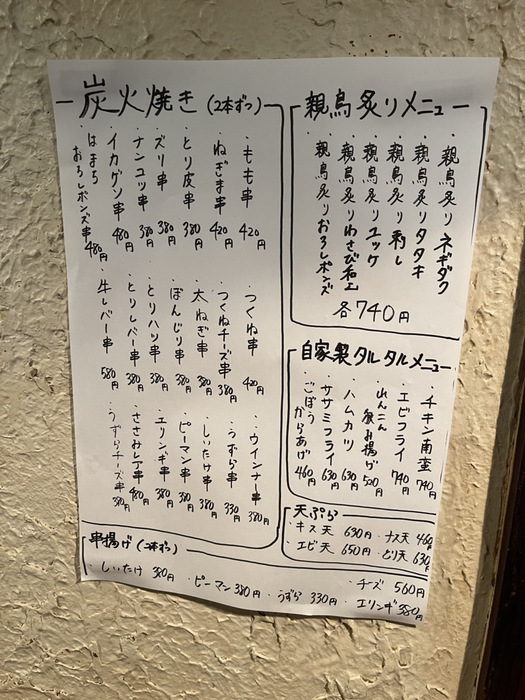 炭火焼き(2本ずつ)
・もも串 420円
・ねぎま串 420円
・とり皮串 380円
・ズリ串 380円
・ナンコツ串 380円
・イカゲソ串 480円
・はまちおろしポンズ串 480円
・つくね串 420円
・つくねチーズ串 380円
・太ねぎ串 380円
・ぼんじり串 380円
・とりハツ串 380円
・とりレバー串 380円
・牛レバー串 580円
・ウインナー串 380円
・うずら串 330円
・しいたけ串 380円
・ピーマン串 380円
・エリンギ串 380円
・ささみしそ串 480円
・うずらチーズ串 380円
親鳥炙りメニュー
・親鳥炙りネギダク
・親鳥炙りタタキ
・親鳥炙り刺し
・親鳥炙りユッケ
・親鳥炙りわさび和え
・親鳥炙りおろしポンズ
各740円
自家製タルタルメニュー
・チキン南蛮 740円
・エビフライ 740円
・れんこん挟み揚げ 520円
・ハムカツ 630円
・ササミフライ 630円
・ごぼうからあげ 460円
天ぷら
・キス天 630円 ・ナス天 460円
・エビ天 650円 ・とり天 630円
串揚げ(2本ずつ)
・しいたけ 380円 ・ピーマン 380円 ・うずら 330円 ・エリンギ 380円
・チーズ 560円